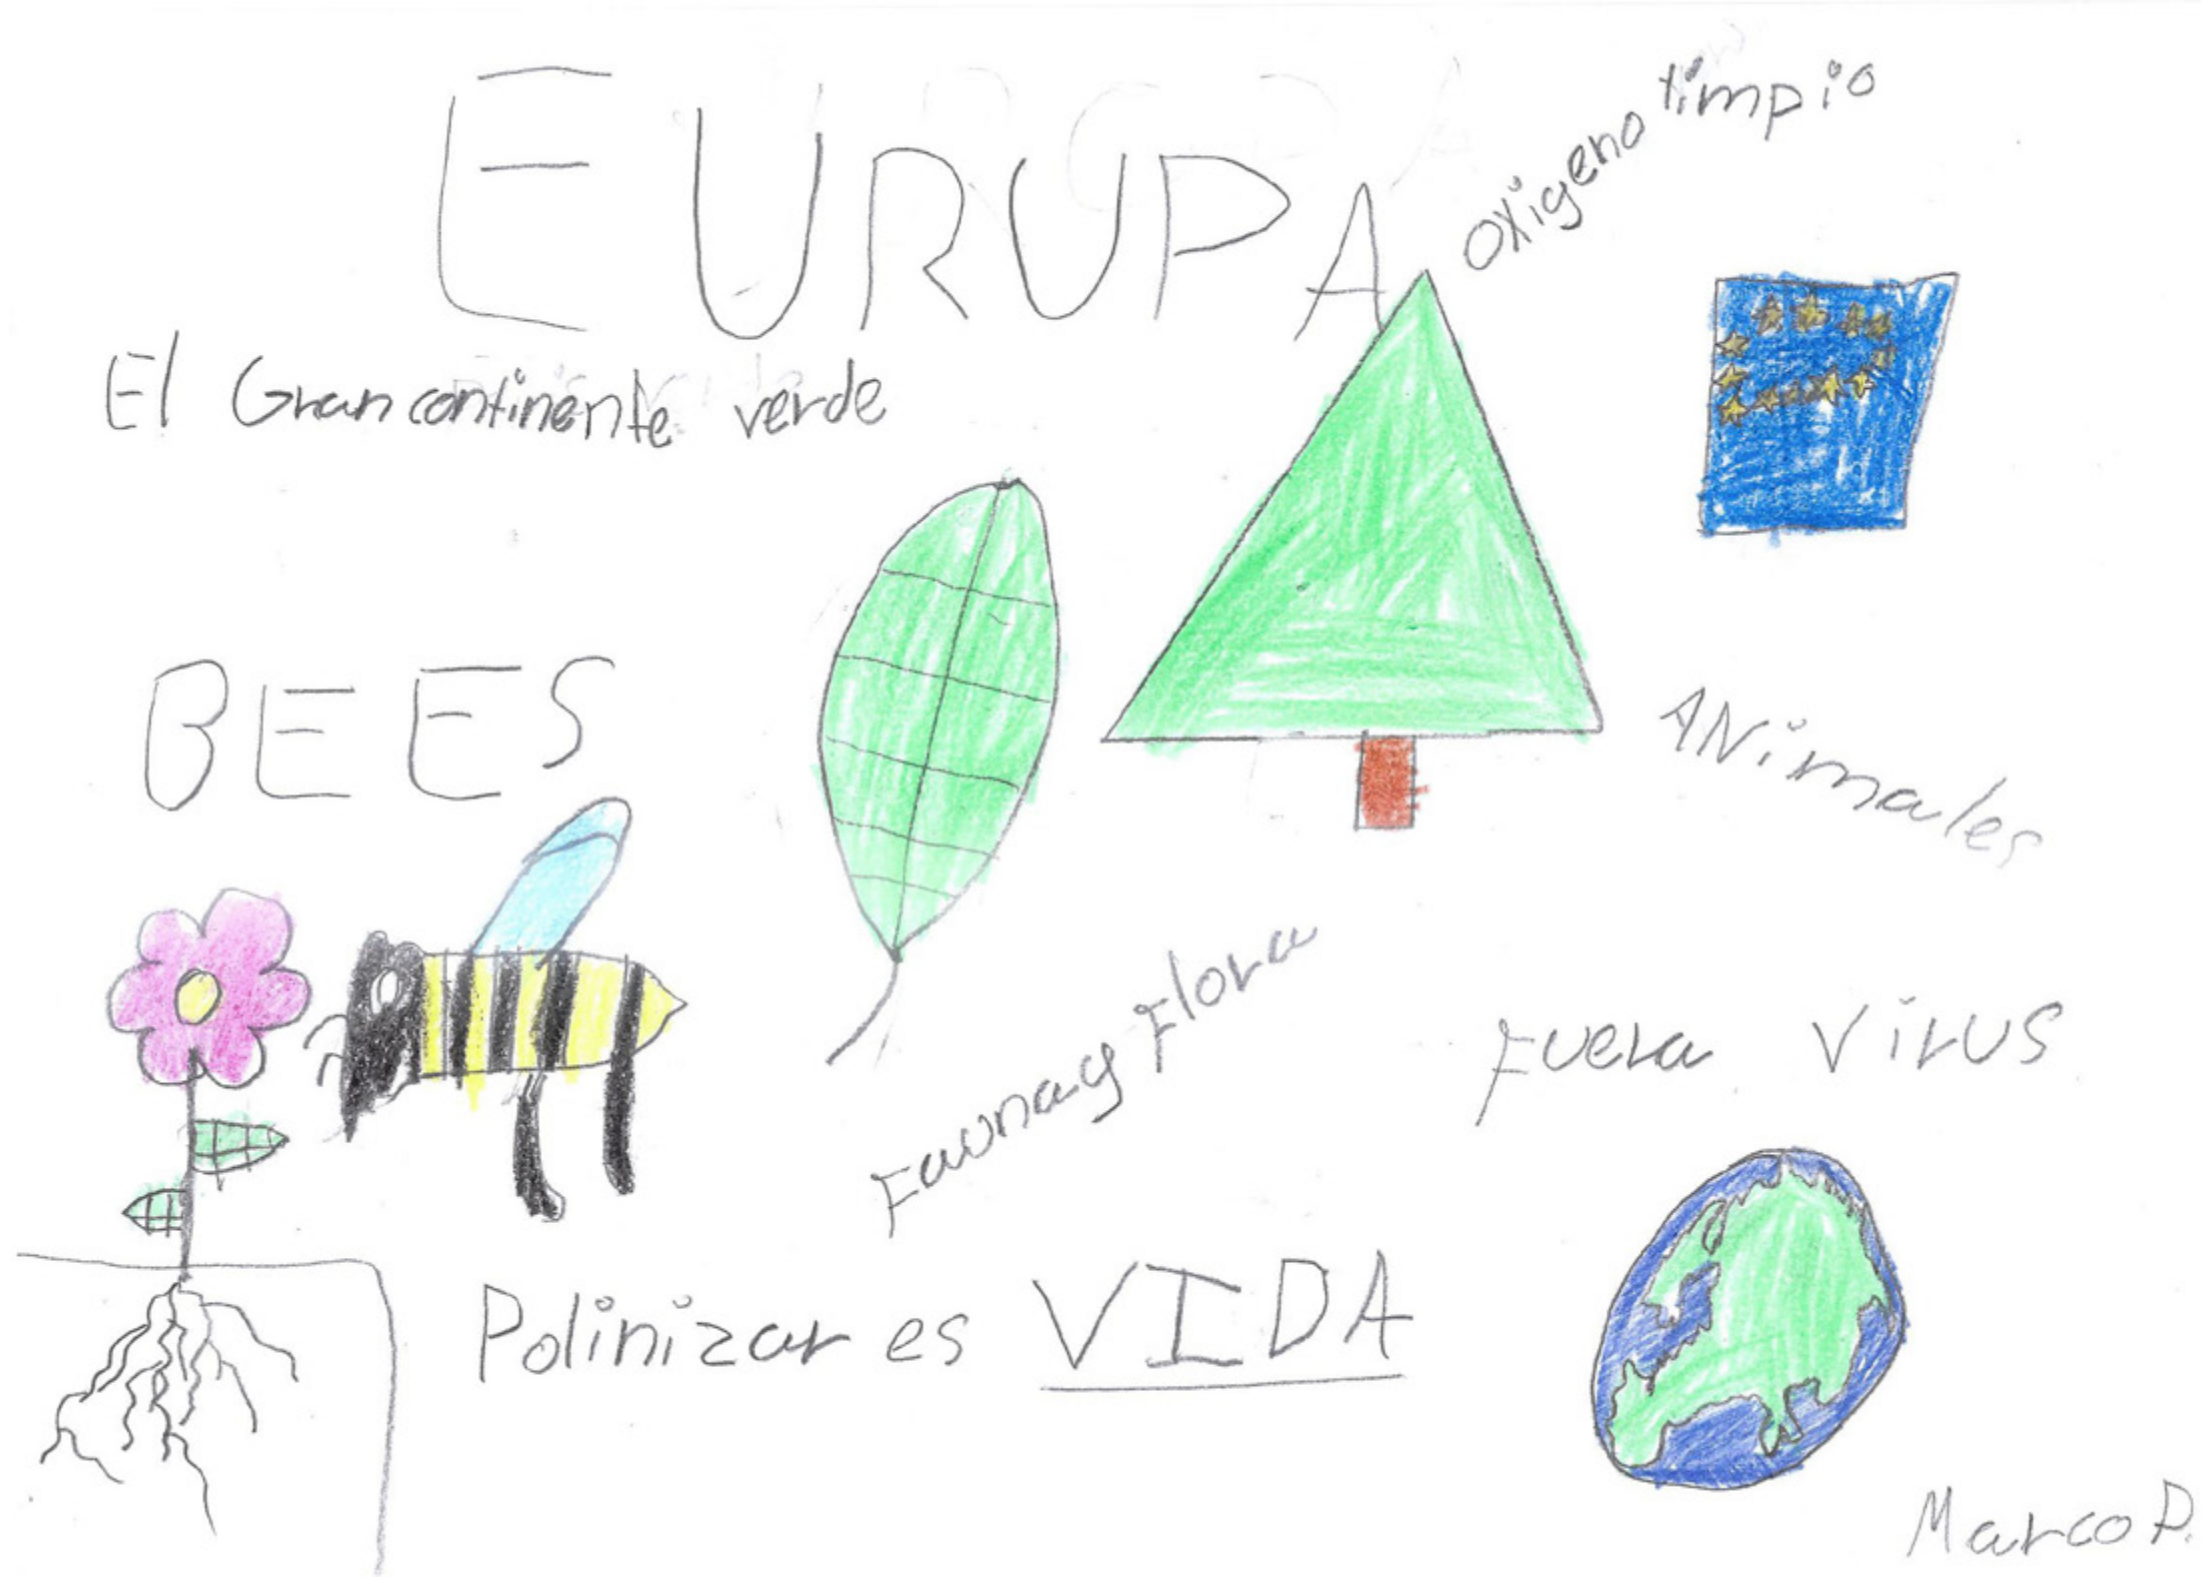 EURUPA
Oxigeno limpio
El Gran continente verde
BEES
ANimales
Fauna y Flora
Fuera Virus
Polinizar es VIDA
Marco P.